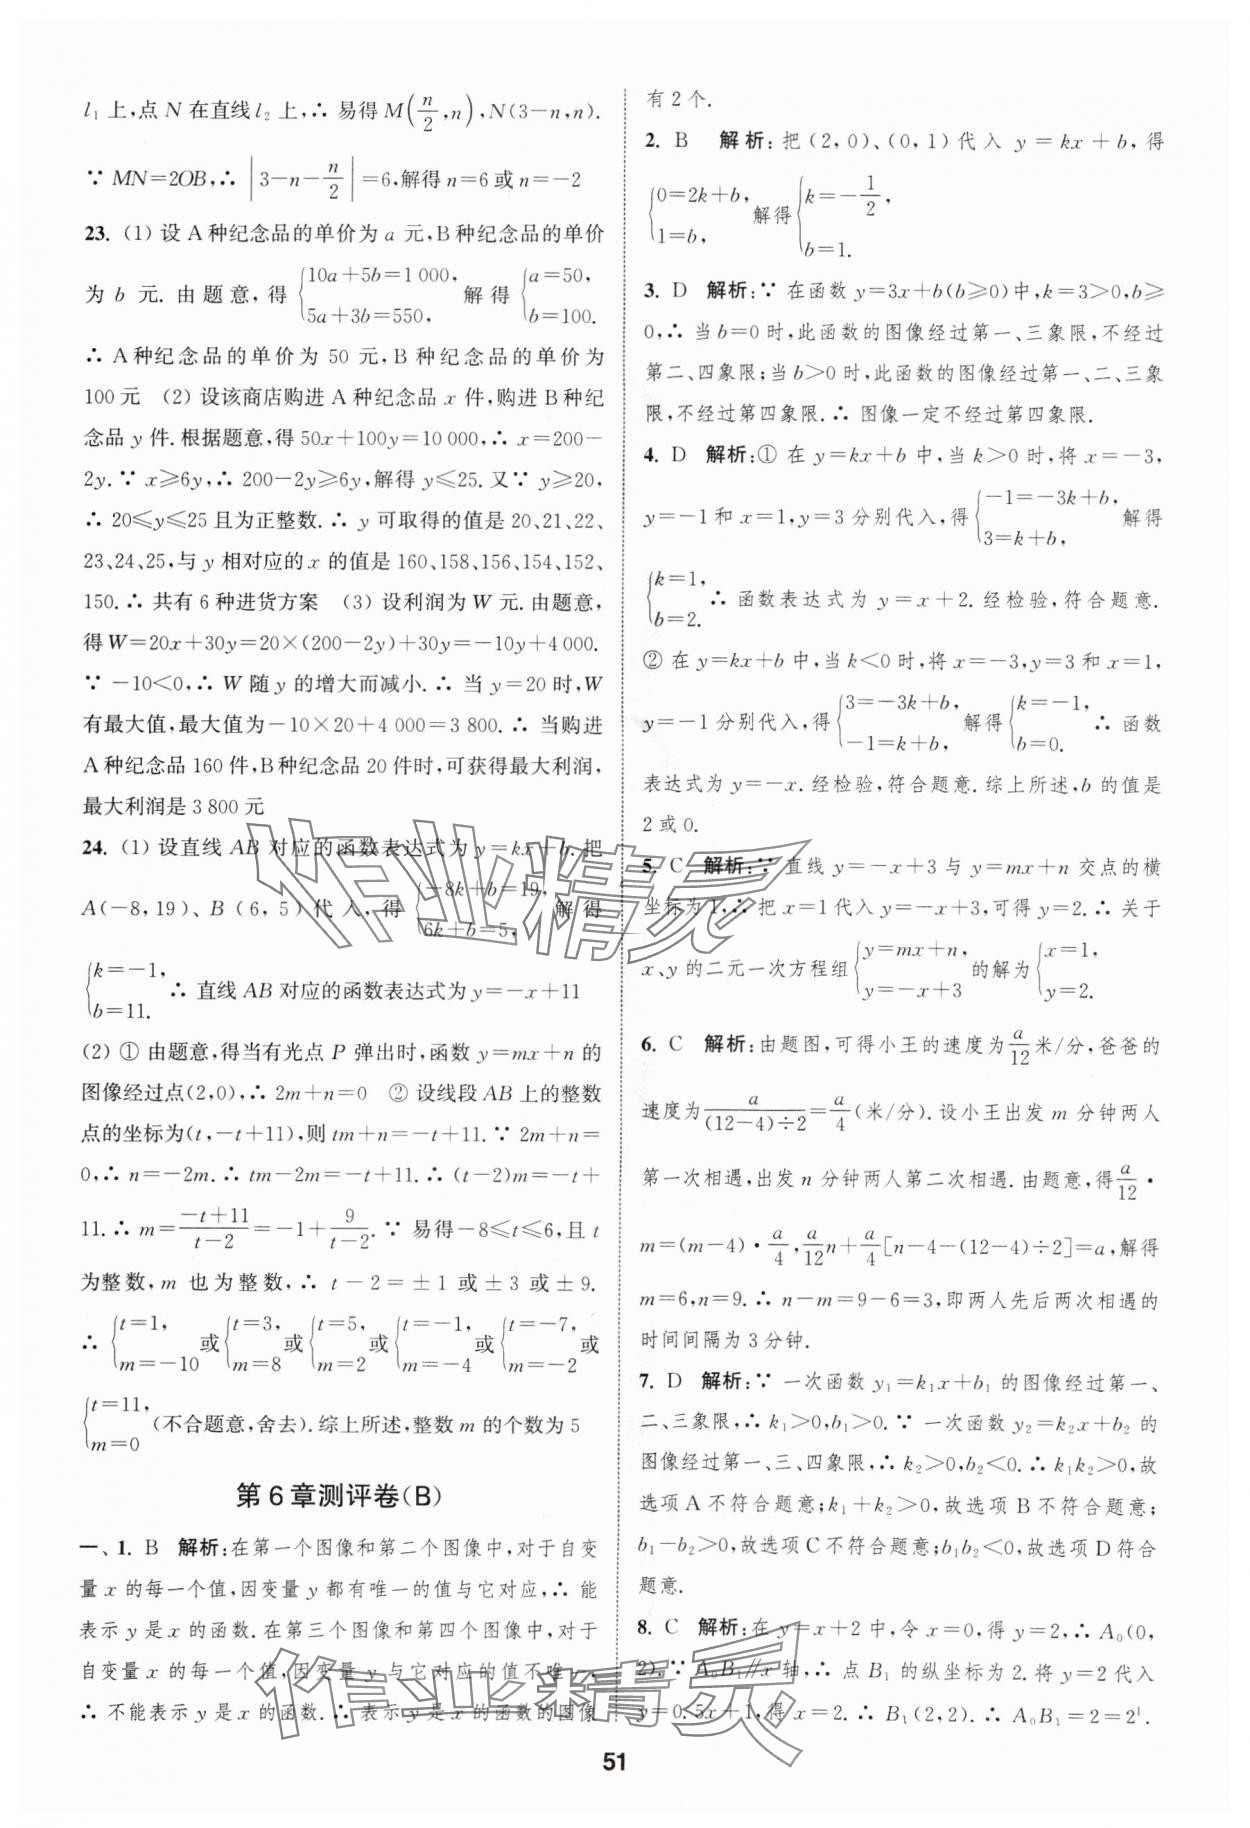 l₁ 上,点 N 在直线 l₂ 上,∴ 易得 M(n/2,n),N(3−n,n).
∵ MN=2OB,∴ |3−n−n/2|=6,解得 n=6 或 n=−2
23. (1) 设 A 种纪念品的单价为 a 元,B 种纪念品的单价
为 b 元. 由题意,得 {10a+5b=1 000, 5a+3b=550, 解得 {a=50, b=100.
∴ A 种纪念品的单价为 50 元,B 种纪念品的单价为
100 元 (2) 设该商店购进 A 种纪念品 x 件,购进 B 种纪
念品 y 件. 根据题意,得 50x+100y=10 000,∴ x=200−
2y. ∵ x⩾6y,∴ 200−2y⩾6y,解得 y⩽25. 又∵ y⩾20,
∴ 20⩽y⩽25 且为正整数. ∴ y 可取得的值是 20、21、22、
23、24、25,与 y 相对应的 x 的值是 160、158、156、154、152、
150. ∴ 共有 6 种进货方案 (3) 设利润为 W 元. 由题意,
得 W=20x+30y=20×(200−2y)+30y=−10y+4 000.
∵ −10<0,∴ W 随 y 的增大而减小. ∴ 当 y=20 时,W
有最大值,最大值为−10×20+4 000=3 800. ∴ 当购进
A 种纪念品 160 件,B 种纪念品 20 件时,可获得最大利润,
最大利润是 3 800 元
24. (1) 设直线 AB 对应的函数表达式为 y=kx+b. 把
A(−8,19)、B(6,5)代入,得 {−8k+b=19, 6k+b=5, 解得
{k=−1, b=11. ∴ 直线 AB 对应的函数表达式为 y=−x+11
(2) ① 由题意,得当有光点 P 弹出时,函数 y=mx+n 的
图像经过点(2,0),∴ 2m+n=0 ② 设线段 AB 上的整数
点的坐标为(t,−t+11),则 tm+n=−t+11. ∵ 2m+n=
0,∴ n=−2m. ∴ tm−2m=−t+11. ∴ (t−2)m=−t+
11. ∴ m=(−t+11)/(t−2)=−1+9/(t−2). ∵ 易得−8⩽t⩽6,且 t
为整数,m 也为整数,∴ t−2=±1 或±3 或±9.
∴ {t=1, m=−10 或 {t=3, m=8 或 {t=5, m=2 或 {t=−1, m=−4 或 {t=−7, m=−2 或
{t=11, m=0 (不合题意,舍去). 综上所述,整数 m 的个数为 5
第 6 章测评卷(B)
一、1. B 解析:在第一个图像和第二个图像中,对于自变
量 x 的每一个值,因变量 y 都有唯一的值与它对应,∴ 能
表示 y 是 x 的函数. 在第三个图像和第四个图像中,对于
自变量 x 的每一个值,因变量 y 与它对应的值不唯一,
∴ 不能表示 y 是 x 的函数. ∴ 表示 y 是 x 的函数的图像
有 2 个.
2. B 解析:把(2,0)、(0,1)代入 y=kx+b,得
{0=2k+b, 1=b, 解得 {k=−1/2, b=1.
3. D 解析:∵ 在函数 y=3x+b(b⩾0)中,k=3>0,b⩾
0,∴ 当 b=0 时,此函数的图像经过第一、三象限,不经过
第二、四象限;当 b>0 时,此函数的图像经过第一、二、三象
限,不经过第四象限. ∴ 图像一定不经过第四象限.
4. D 解析:① 在 y=kx+b 中,当 k>0 时,将 x=−3,
y=−1 和 x=1,y=3 分别代入,得 {−1=−3k+b, 3=k+b, 解得
{k=1, b=2. ∴ 函数表达式为 y=x+2. 经检验,符合题意.
② 在 y=kx+b 中,当 k<0 时,将 x=−3,y=3 和 x=1,
y=−1 分别代入,得 {3=−3k+b, −1=k+b, 解得 {k=−1, b=0. ∴ 函数
表达式为 y=−x. 经检验,符合题意. 综上所述,b 的值是
2 或 0.
5. C 解析:∵ 直线 y=−x+3 与 y=mx+n 交点的横
坐标为 1,∴ 把 x=1 代入 y=−x+3,可得 y=2. ∴ 关于
x、y 的二元一次方程组 {y=mx+n, y=−x+3 的解为 {x=1, y=2.
6. C 解析:由题图,可得小王的速度为 a/12 米/分,爸爸的
速度为 a/((12−4)÷2)=a/4(米/分). 设小王出发 m 分钟两人
第一次相遇,出发 n 分钟两人第二次相遇. 由题意,得 a/12 ·
m=(m−4)·a/4,a/12 n+a/4[n−4−(12−4)÷2]=a,解得
m=6,n=9. ∴ n−m=9−6=3,即两人先后两次相遇的
时间间隔为 3 分钟.
7. D 解析:∵ 一次函数 y₁=k₁x+b₁ 的图像经过第一、
二、三象限,∴ k₁>0,b₁>0. ∵ 一次函数 y₂=k₂x+b₂ 的
图像经过第一、三、四象限,∴ k₂>0,b₂<0. ∴ k₁k₂>0,故
选项 A 不符合题意;k₁+k₂>0,故选项 B 不符合题意;
b₁−b₂>0,故选项 C 不符合题意;b₁b₂<0,故选项 D 符合
题意.
8. C 解析:在 y=x+2 中,令 x=0,得 y=2,∴ A₀(0,
2). ∵ A₀B₁∥x 轴,∴ 点 B₁ 的纵坐标为 2. 将 y=2 代入
y=0.5x+1,得 x=2. ∴ B₁(2,2). ∴ A₀B₁=2=2¹.
作业精灵
作业精灵
51